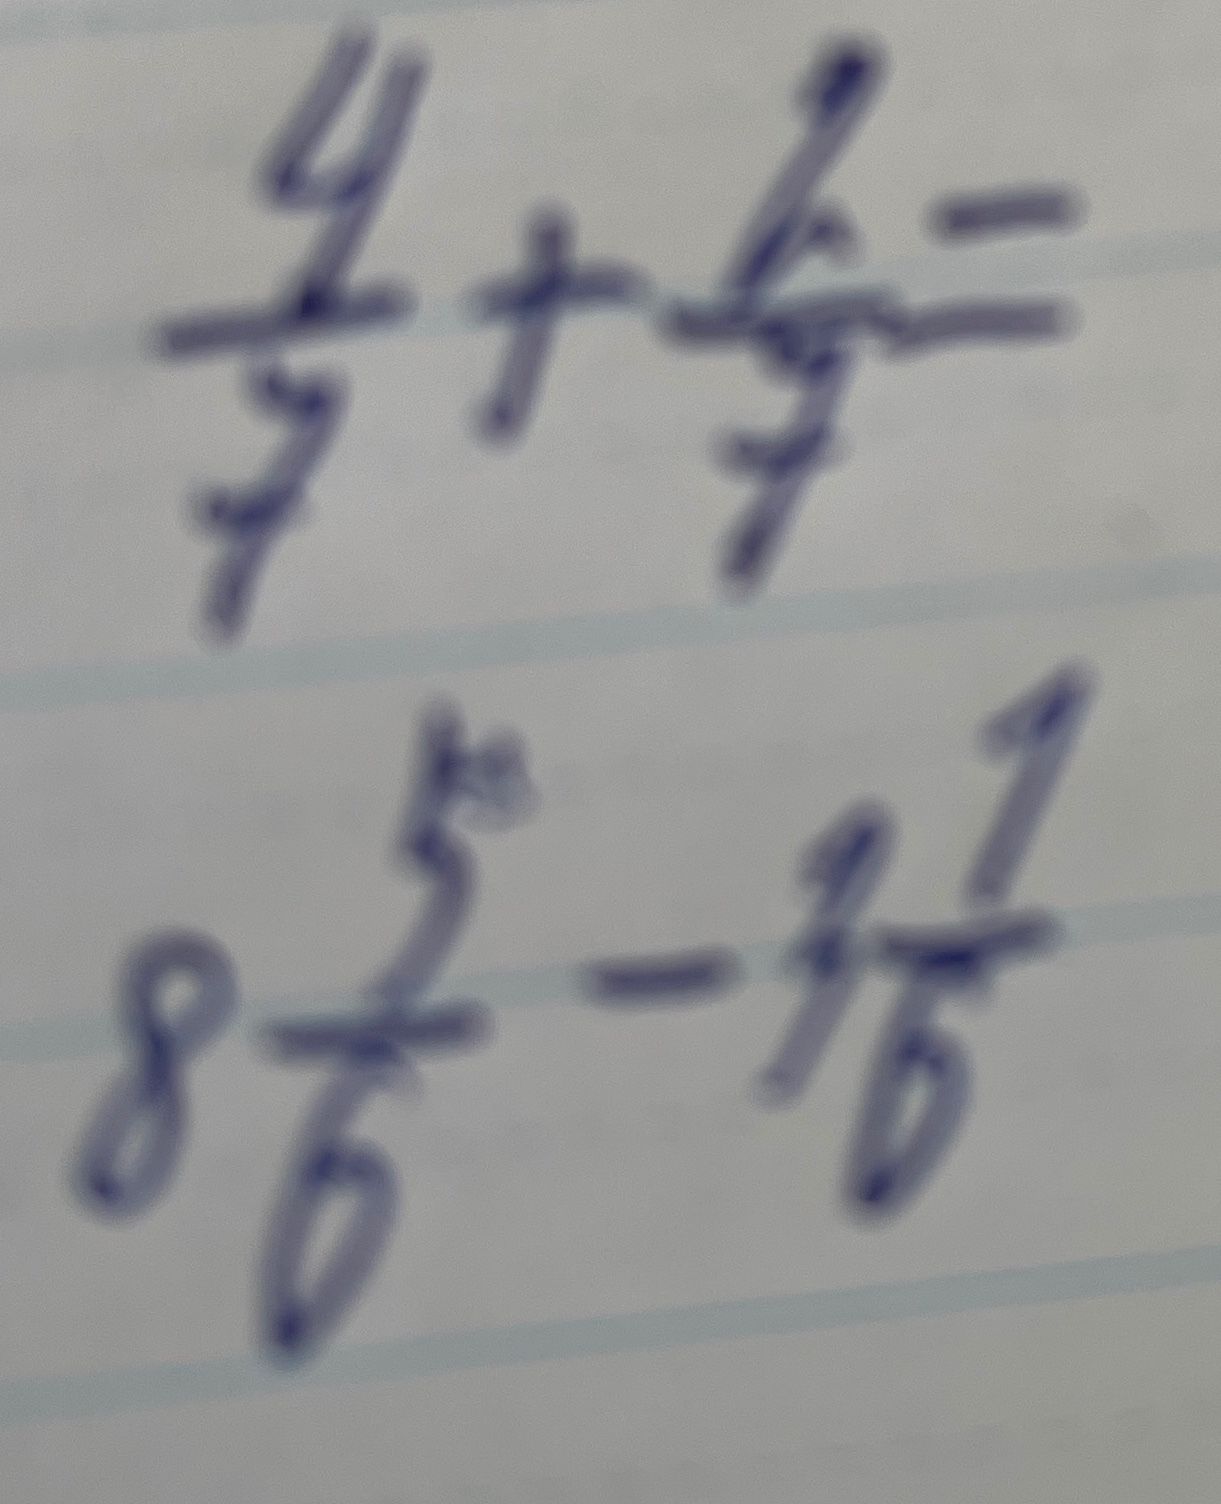 4/7 + 2/7 =
8 5/6 - 1 1/6